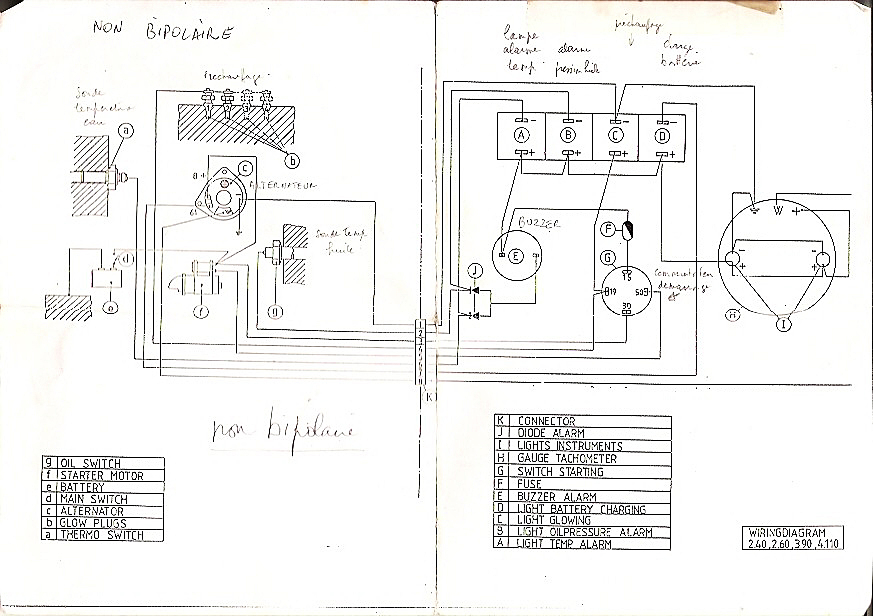 NON BIPOLAIRE
lampe
alarme
temp.
alarme
pression huile
préchauffage
charge
batterie
Sonde
température
eau
préchauffage
a
b
c
B+
ALTERNATEUR
61
Sonde temp
huile
d
e
f
g
A
B
C
D
BUZZER
E
F
G
15
19
50
30
J
Commutateur
demarrage
W
+
H
I
1
2
K
non bipolaire
g OIL SWITCH
f STARTER MOTOR
e BATTERY
d MAIN SWITCH
c ALTERNATOR
b GLOW PLUGS
a THERMO SWITCH
K CONNECTOR
J DIODE ALARM
I LIGHTS INSTRUMENTS
H GAUGE TACHOMETER
G SWITCH STARTING
F FUSE
E BUZZER ALARM
D LIGHT BATTERY CHARGING
C LIGHT GLOWING
B LIGHT OILPRESSURE ALARM
A LIGHT TEMP. ALARM
WIRINGDIAGRAM
2.40,2.60,3.90,4.110